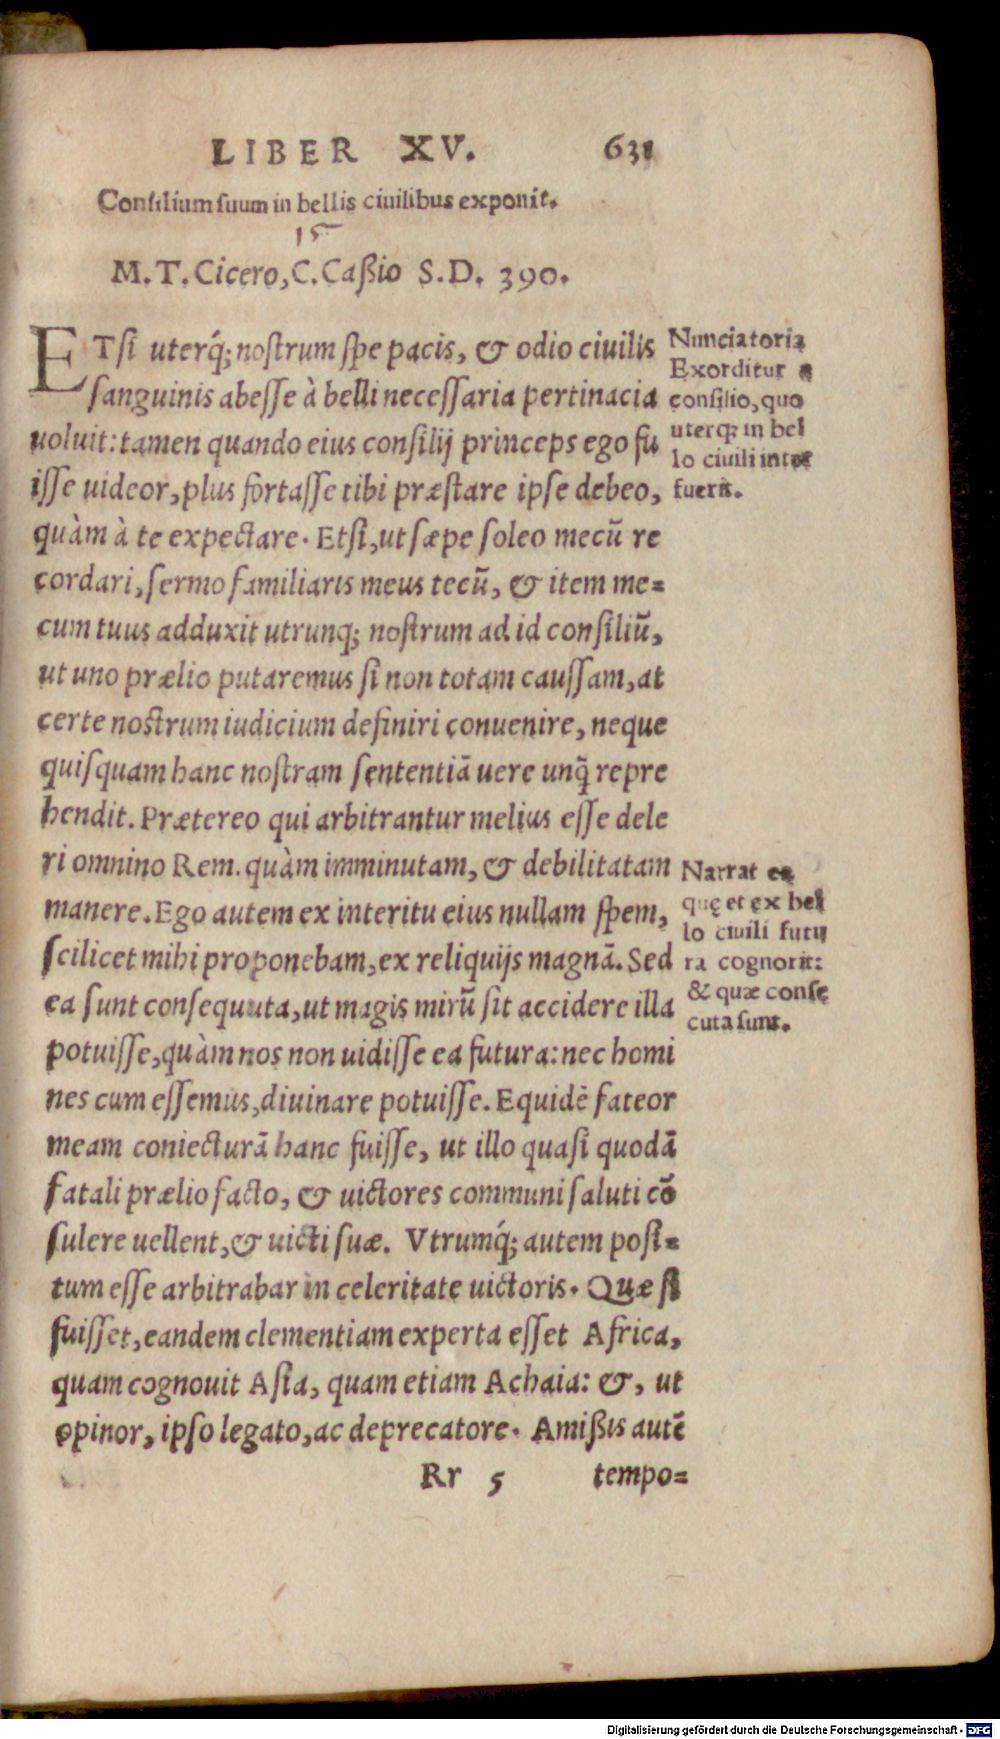 LIBER XV. 631
Consilium suum in bellis ciuilibus exponit.
15
M. T. Cicero, C. Caßio S. D. 390.
ETsi uterq́; nostrum spe pacis, & odio ciuilis
sanguinis abesse à belli necessaria pertinacia
uoluit: tamen quando eius consilij princeps ego fu
isse uideor, plus fortasse tibi præstare ipse debeo,
quàm à te expectare. Etsi, ut sæpe soleo mecū re
cordari, sermo familiaris meus tecū, & item me=
cum tuus adduxit utrunq; nostrum ad id consiliū,
ut uno prælio putaremus si non totam caussam, at
certe nostrum iudicium definiri conuenire, neque
quisquam hanc nostram sententiā uere unq̄ repre
hendit. Prætereo qui arbitrantur melius esse dele
ri omnino Rem. quàm imminutam, & debilitatam
manere. Ego autem ex interitu eius nullam spem,
scilicet mihi proponebam, ex reliquijs magnā. Sed
ea sunt consequuta, ut magis mirū sit accidere illa
potuisse, quàm nos non uidisse ea futura: nec homi
nes cum essemus, diuinare potuisse. Equidē fateor
meam coniecturā hanc fuisse, ut illo quasi quodā
fatali prælio facto, & uictores communi saluti cō
sulere uellent, & uicti suæ. Vtrumq́; autem posi=
tum esse arbitrabar in celeritate uictoris. Quæ si
fuisset, eandem clementiam experta esset Africa,
quam cognouit Asia, quam etiam Achaia: &, ut
opinor, ipso legato, ac deprecatore. Amißis autē
Rr 5 tempo=
Nunciatoria
Exorditur a
consilio, quo
uterq; in bel
lo ciuili inter
fuerit.
Narrat ea
quę et ex bel
lo ciuili futu
ra cognorit:
& quæ conse
cuta sunt.
Digitalisierung gefördert durch die Deutsche Forschungsgemeinschaft - DFG